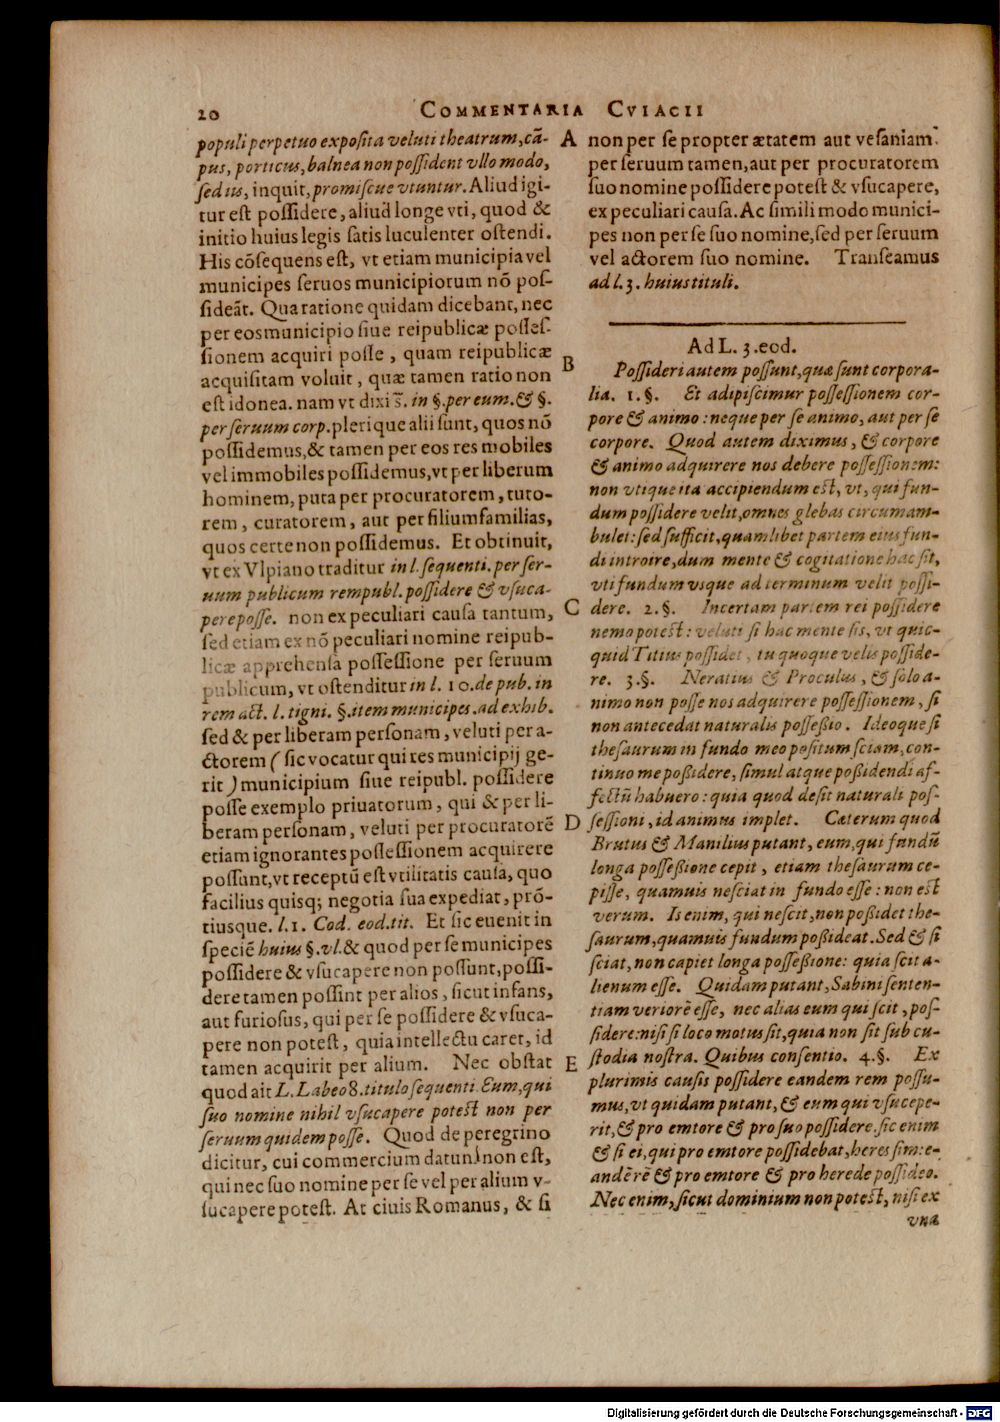 20
COMMENTARIA CVIACII
populi perpetuo exposita veluti theatrum, cā-
pus, porticus, balnea non possident vllo modo,
sed iis, inquit, promiscue vtuntur. Aliud igi-
tur est possidere, aliud longe vti, quod &
initio huius legis satis luculenter ostendi.
His cōsequens est, vt etiam municipia vel
municipes seruos municipiorum nō pos-
sideāt. Qua ratione quidam dicebant, nec
per eos municipio siue reipublicæ posses-
sionem acquiri posse, quam reipublicæ
acquisitam voluit, quæ tamen ratio non
est idonea. nam vt dixi s̄. in §. per eum. & §.
per seruum corp. plerique alii sunt, quos nō
possidemus, & tamen per eos res mobiles
vel immobiles possidemus, vt per liberum
hominem, puta per procuratorem, tuto-
rem, curatorem, aut per filiumfamilias,
quos certe non possidemus. Et obtinuit,
vt ex Vlpiano traditur in l. sequenti. per ser-
uum publicum rempubl. possidere & vsuca-
pere posse. non ex peculiari causa tantum,
sed etiam ex nō peculiari nomine reipub-
licæ apprehensa possessione per seruum
publicum, vt ostenditur in l. 10. de pub. in
rem act. l. tigni. §. item municipes. ad exhib.
sed & per liberam personam, veluti per a-
ctorem (sic vocatur qui res municipij ge-
rit) municipium siue reipubl. possidere
posse exemplo priuatorum, qui & per li-
beram personam, veluti per procuratorē
etiam ignorantes possessionem acquirere
possunt, vt receptū est vtilitatis causa, quo
facilius quisq; negotia sua expediat, prō-
tiusque. l. 1. Cod. eod. tit. Et sic euenit in
speciē huius §. vl. & quod per se municipes
possidere & vsucapere non possunt, possi-
dere tamen possint per alios, sicut infans,
aut furiosus, qui per se possidere & vsuca-
pere non potest, quia intellectu caret, id
tamen acquirit per alium. Nec obstat
quod ait L. Labeo 8. titulo sequenti. Eum, qui
suo nomine nihil vsucapere potest non per
seruum quidem posse. Quod de peregrino
dicitur, cui commercium datum non est,
qui nec suo nomine per se vel per alium v-
sucapere potest. At ciuis Romanus, & si
A
B
C
D
E
non per se propter ætatem aut vesaniam
per seruum tamen, aut per procuratorem
suo nomine possidere potest & vsucapere,
ex peculiari causa. Ac simili modo munici-
pes non per se suo nomine, sed per seruum
vel actorem suo nomine. Transeamus
ad l. 3. huius tituli.
Ad L. 3. eod.
Possideri autem possunt, quæ sunt corpora-
lia. 1. §. Et adipiscimur possessionem cor-
pore & animo: neque per se animo, aut per se
corpore. Quod autem diximus, & corpore
& animo adquirere nos debere possessionem:
non vtique ita accipiendum est, vt, qui fun-
dum possidere velit, omnes glebas circumam-
bulet: sed sufficit, quamlibet partem eius fun-
di introire, dum mente & cogitatione hac sit,
vti fundum vsque ad terminum velit possi-
dere. 2. §. Incertam partem rei possidere
nemo potest: veluti si hac mente sis, vt quic-
quid Titius possidet, tu quoque velis posside-
re. 3. §. Neratius & Proculus, & solo a-
nimo non posse nos adquirere possessionem, si
non antecedat naturalis possessio. Ideoque si
thesaurum in fundo meo positum sciam, con-
tinuo me possidere, simul atque possidendi af-
fectū habuero: quia quod desit naturali pos-
sessioni, id animus implet. Cæterum quod
Brutus & Manilius putant, eum, qui fundū
longa possessione cepit, etiam thesaurum ce-
pisse, quamuis nesciat in fundo esse: non est
verum. Is enim, qui nescit, non possidet the-
saurum, quamuis fundum possideat. Sed & si
sciat, non capiet longa possessione: quia scit a-
lienum esse. Quidam putant, Sabini senten-
tiam veriorē esse, nec alias eum qui scit, pos-
sidere: nisi si loco motus sit, quia non sit sub cu-
stodia nostra. Quibus consentio. 4. §. Ex
plurimis causis possidere eandem rem possu-
mus, vt quidam putant, & eum qui vsucepe-
rit, & pro emtore & pro suo possidere. sic enim
& si ei, qui pro emtore possidebat, heres sim: e-
andē rē & pro emtore & pro herede possideo.
Nec enim, sicut dominium non potest, nisi ex
vna
Digitalisierung gefördert durch die Deutsche Forschungsgemeinschaft - DFG